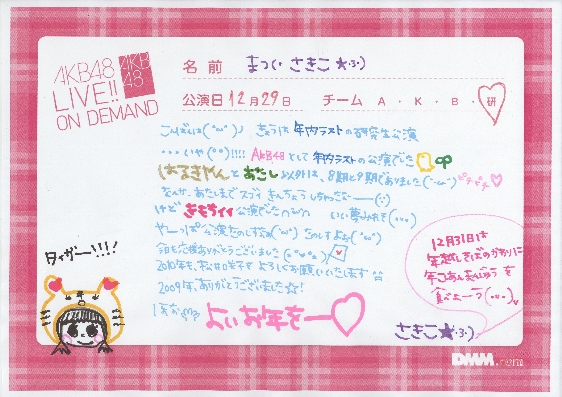 AKB48
LIVE!!
ON DEMAND
AKB
48
名前 まつい さきこ★・3・)
公演日 12月29日 チーム A・K・B・研
こんばんは(^ω^)♪ きょうは年内ラストの研究生公演
・・・いや(°°)!!!! AKB48として年内ラストの公演でした
はるきゃんとあたし以外は、8期と9期でありました
ピチピチ♡
なんか、あたしまでスゴイきんちょうしちゃったー
けどきもちイイ公演でした いい夢みれそ
やーっぱ公演たのしすぎる たのしすよね
今日も応援ありがとうございました
2010年も、松井咲子を よろしくお願いいたします
2009年、ありがとうございました☆!
よいお年をー♡
タイガー!!!!
12月31日は
年越しそばのかわりに
年こしあんまんじゅうを
食べよーう
さきこ★・3・)
DMM.com